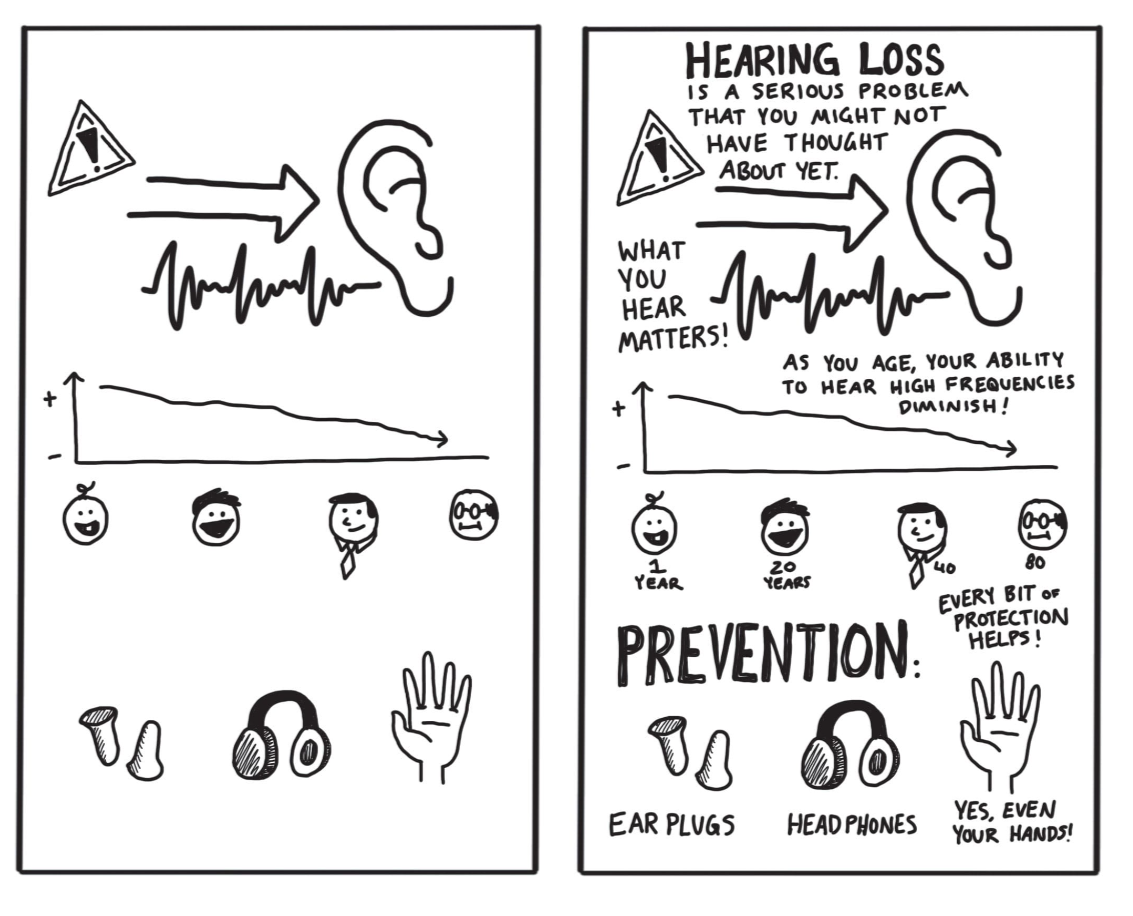 HEARING LOSS
IS A SERIOUS PROBLEM
THAT YOU MIGHT NOT
HAVE THOUGHT
ABOUT YET.
WHAT
YOU
HEAR
MATTERS!
AS YOU AGE, YOUR ABILITY
TO HEAR HIGH FREQUENCIES
DIMINISH!
+
-
+
-
1
YEAR
20
YEARS
40
80
EVERY BIT OF
PROTECTION
HELPS!
PREVENTION:
EAR PLUGS
HEADPHONES
YES, EVEN
YOUR HANDS!